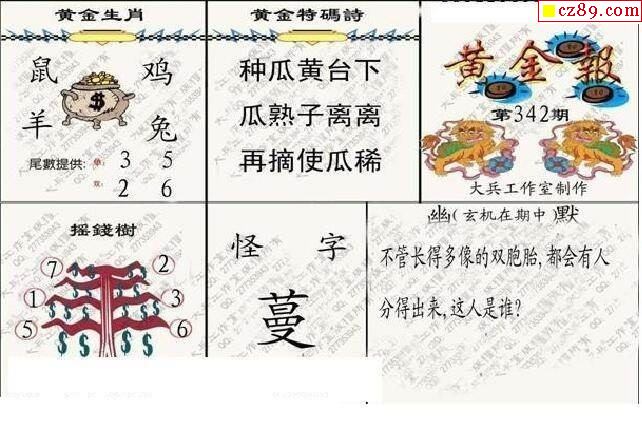 黄金生肖
鼠 鸡
羊 兔
$
尾數提供: 单: 3 5
双: 2 6
黄金特碼詩
种瓜黄台下
瓜熟子离离
再摘使瓜稀
cz89.com
黄金報
第342期
大兵工作室制作
摇錢樹
7 2
1 3
5 6
$ $ $ $ $ $
怪 字
蔓
幽(玄机在期中)默
不管长得多像的双胞胎,都会有人
分得出来,这人是谁?